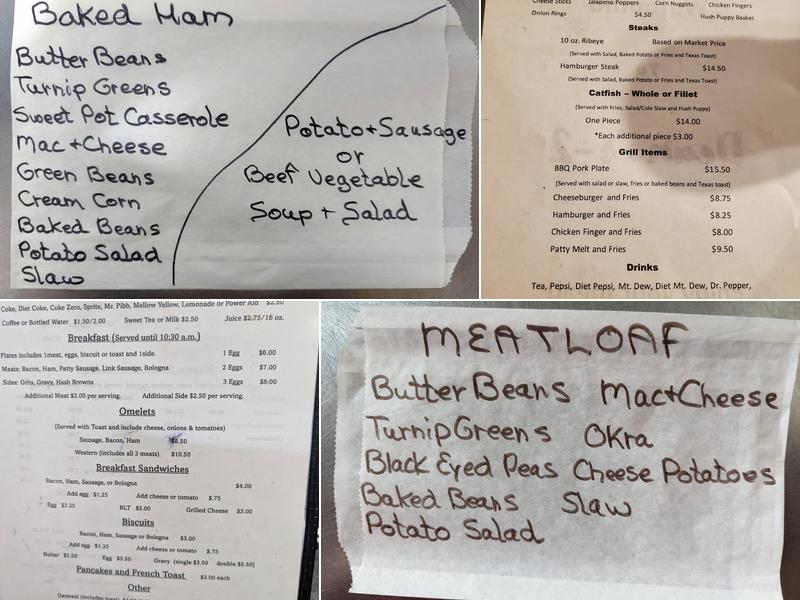 Baked Ham
Butter Beans
Turnip Greens
Sweet Pot Casserole
Mac + Cheese
Green Beans
Cream Corn
Baked Beans
Potato Salad
Slaw
Potato + Sausage
or
Beef Vegetable
Soup + Salad
Cheese Sticks Jalapeno Poppers Corn Nuggets Chicken Fingers
Onion Rings $4.50 Hush Puppy Basket
Steaks
10 oz. Ribeye Based on Market Price
(Served with Salad, Baked Potato or Fries and Texas Toast)
Hamburger Steak $14.50
(Served with Salad, Baked Potato or Fries and Texas Toast)
Catfish – Whole or Fillet
(Served with Fries, Salad/Cole Slaw and Hush Puppy)
One Piece $14.00
*Each additional piece $3.00
Grill Items
BBQ Pork Plate $15.50
(Served with salad or slaw, fries or baked beans and Texas toast)
Cheeseburger and Fries $8.75
Hamburger and Fries $8.25
Chicken Finger and Fries $8.00
Patty Melt and Fries $9.50
Drinks
Tea, Pepsi, Diet Pepsi, Mt. Dew, Diet Mt. Dew, Dr. Pepper,
Coke, Diet Coke, Coke Zero, Sprite, Mr. Pibb, Mellow Yellow, Lemonade or Power Aid $2.50
Coffee or Bottled Water $1.50/2.00 Sweet Tea or Milk $2.50 Juice $2.75/16 oz.
Breakfast (Served until 10:30 a.m.)
Plates includes 1meat, eggs, biscuit or toast and 1side. 1 Egg $6.00
Meats: Bacon, Ham, Patty Sausage, Link Sausage, Bologna 2 Eggs $7.00
Sides: Grits, Gravy, Hash Browns 3 Eggs $8.00
Additional Meat $3.00 per serving. Additional Side $2.50 per serving.
Omelets
(Served with Toast and include cheese, onions & tomatoes)
Sausage, Bacon, Ham $8.50
Western (includes all 3 meats) $10.50
Breakfast Sandwiches
Bacon, Ham, Sausage, or Bologna $4.00
Add egg $1.25 Add cheese or tomato $.75
Egg $2.25 BLT $5.00 Grilled Cheese $3.00
Biscuits
Bacon, Ham, Sausage or Bologna $3.00
Add egg $1.25 Add cheese or tomato $.75
Butter $1.50 Egg $3.50 Gravy (single $3.50 double $5.50)
Pancakes and French Toast $3.00 each
Other
MEATLOAF
Butter Beans Mac+Cheese
Turnip Greens Okra
Black Eyed Peas Cheese Potatoes
Baked Beans Slaw
Potato Salad